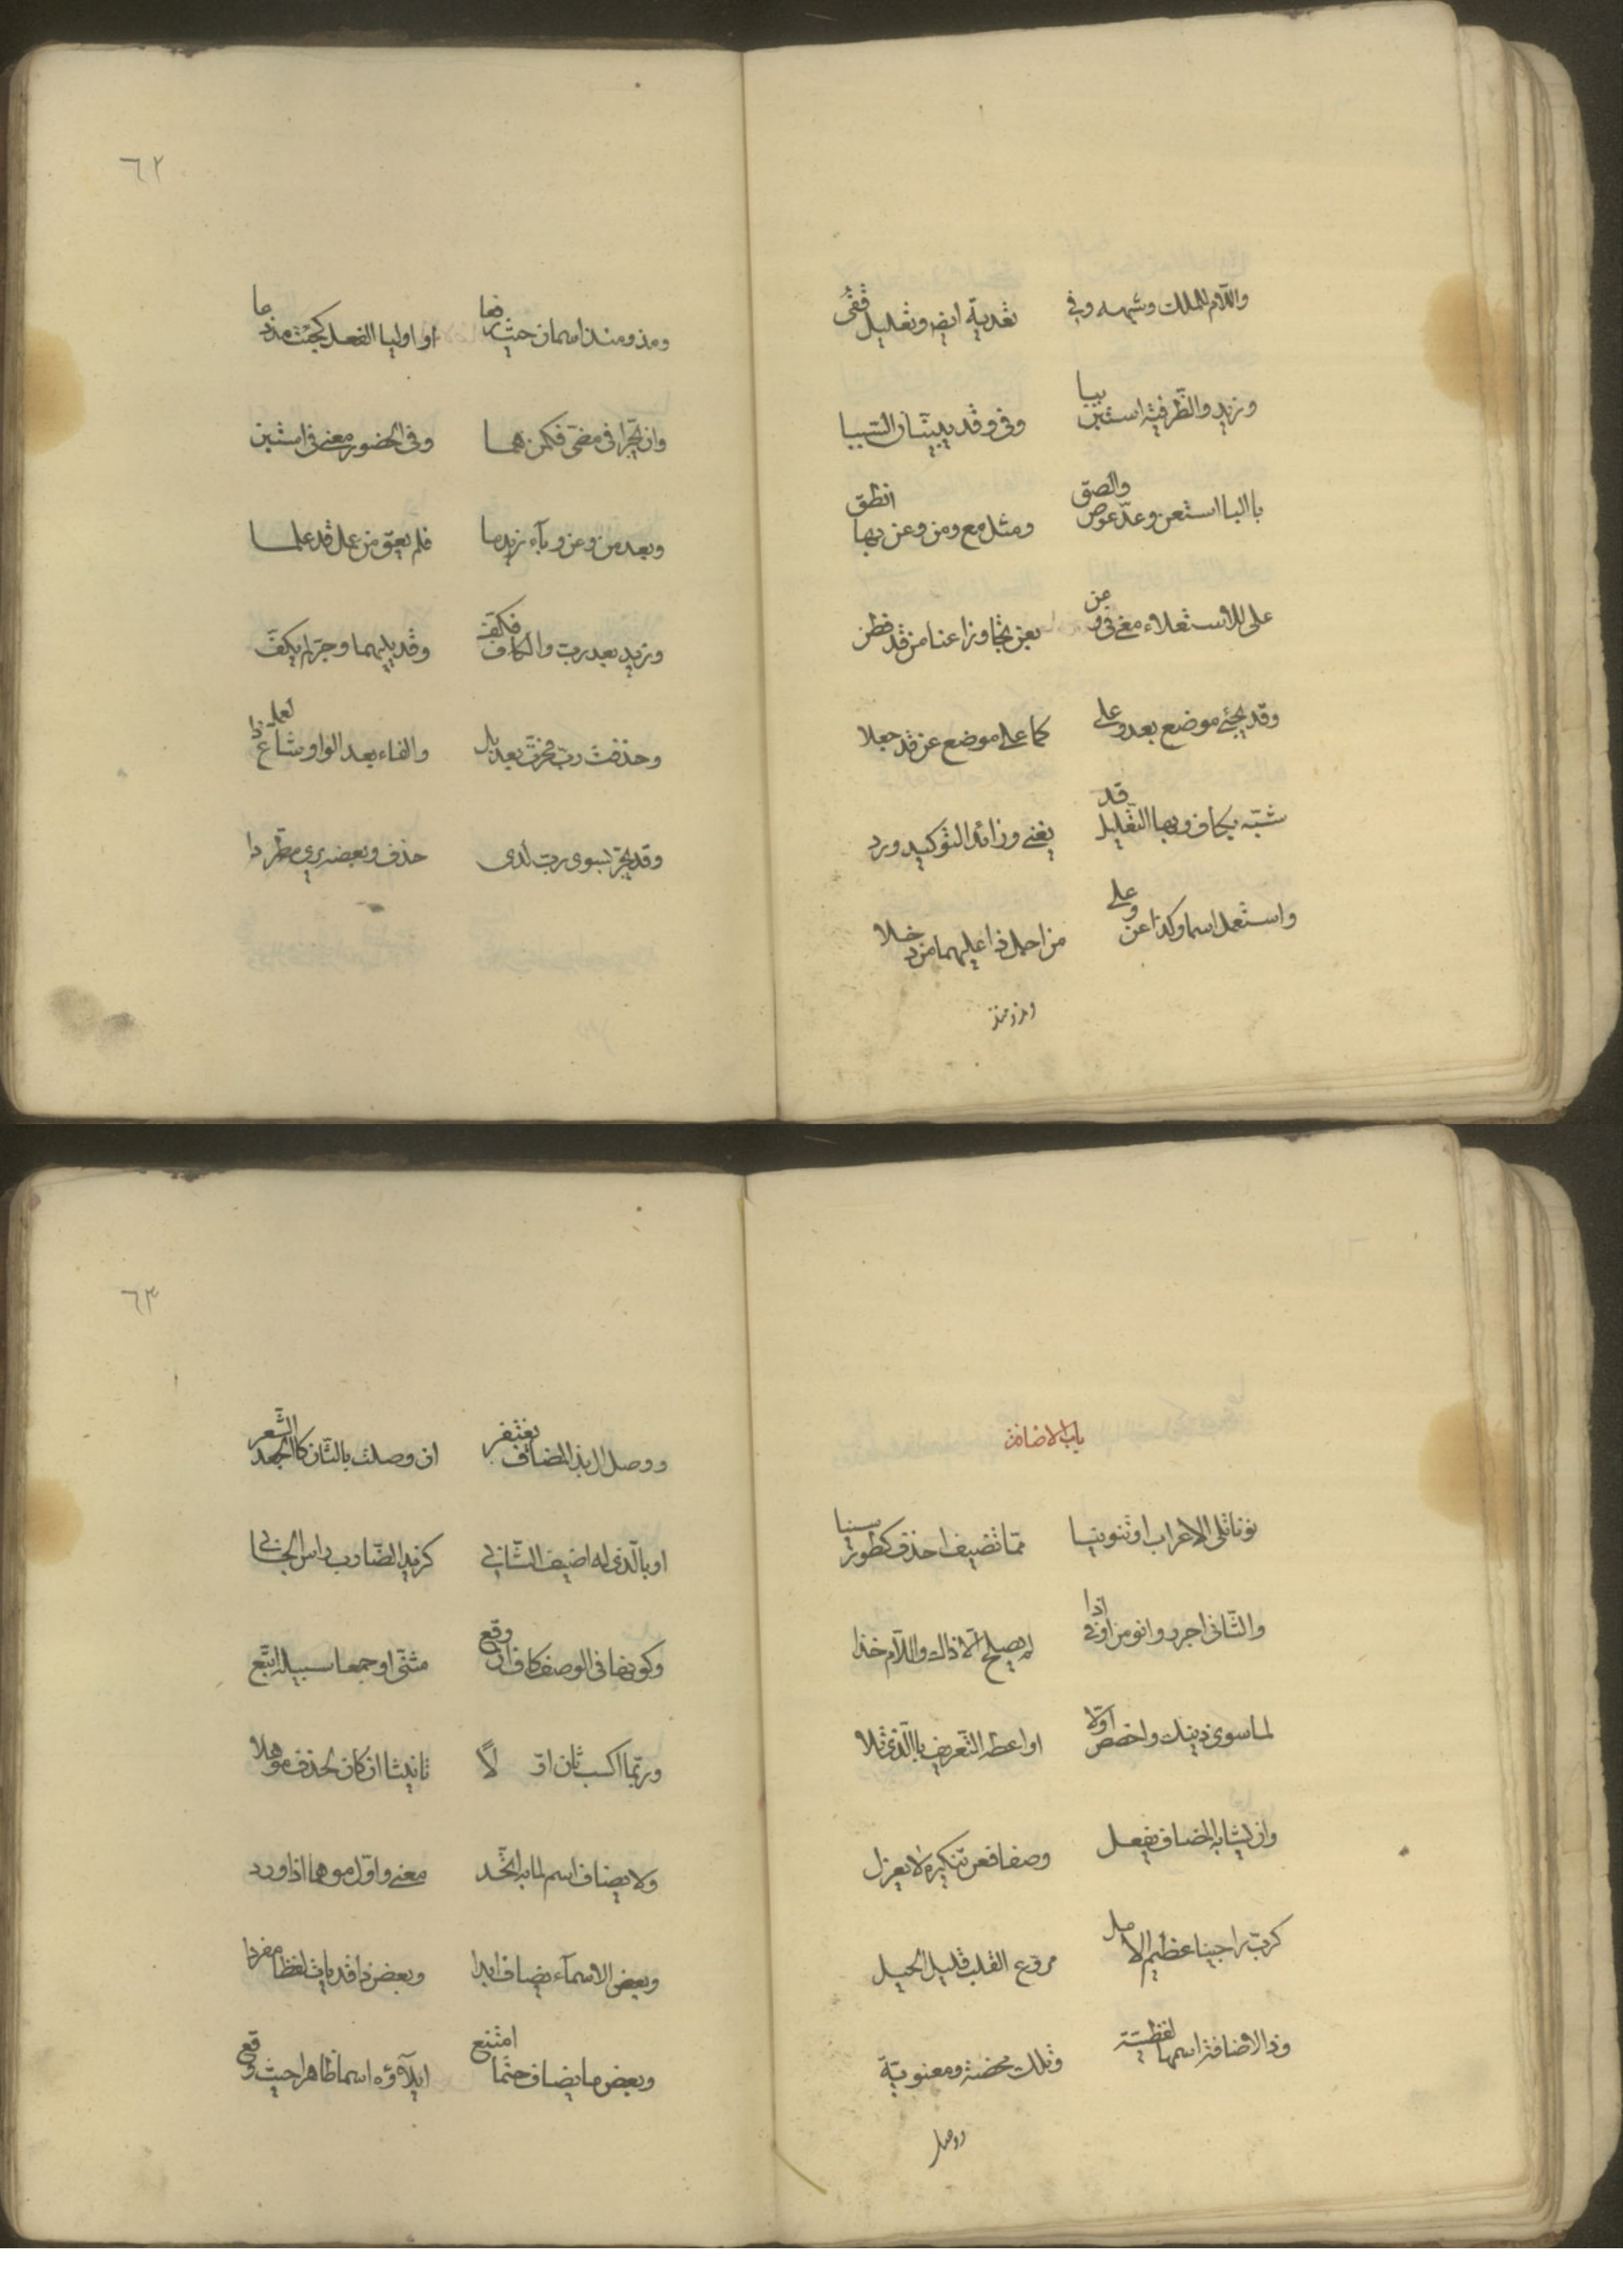 واللام للملك وشبهه وفي تعدية ايضا وتعليل قفى
وزيد والظرفية استبن ببا وفي وقد يبينان السببا
بالبا استعن وعدّ عوض والصق ومثل مع ومن وعن بها انطق
على للاستعلاء معنى في وعن بعن تجاوزا عنا من قد فطن
وقد يجئ موضع بعد وعلى كما على موضع عن قد جعلا
شبّه بكاف وبها التعليل قد يعنى وزائدا لتوكيد ورد
واستعمل اسما وكذا عن وعلى من اجل ذا عليهما من دخلا
ومذ ومنذ
٦٢
ومذ ومنذ اسمان حيث رفعا او اوليا الفعل كجئت مذ دعا
وان يجرّا في مضى فكمن هما وفي الحضور معنى في استبن
وبعد من وعن وباء زيد ما فلم يعق عن عمل قد علما
وزيد بعد ربّ والكاف فكفّ وقد يليهما وجرّ لم يكفّ
وحذفت ربّ فجرّت بعد بل والفاء بعد الواو شاع ذا لعمل
وقد يجرّ بسوى ربّ لدى حذف وبعضه يرى مطّردا
باب الاضافة
نونا تلى الاعراب او تنوينا ممّا تضيف احذف كطور سينا
والثّاني اجرر وانو من او في اذا لم يصلح الّا ذاك واللام خذا
لما سوى ذينك واخصص اوّلا او اعطه التّعريف باالّذي تلا
وان يشابه المضاف يفعل وصفا فعن تنكيره لا يعزل
كربّ راجينا عظيم الامل مروّع القلب قليل الحيل
وذا الاضافة اسمها لفظيّة وتلك محضة ومعنويّة
ووصل
٦٣
ووصل ال بذا المضاف يغتفر ان وصلت بالثّان كاالجعد الشّعر
او بالّذي له اضيف الثّاني كزيد الضّارب راس الجاني
وكونها في الوصف كاف ان وقع مثنّى او جمعا سبيله اتّبع
وربّما اكسب ثان اوّلاً تانيثا ان كان لحذف موهلا
ولا يضاف اسم لما به اتّحد معنى واوّل موهما اذا ورد
وبعض الاسمآء يضاف ابدا وبعض ذا قد يات لفظا مفردا
وبعض ما يضاف حتما امتنع ايلآؤه اسما ظاهرا حيث وقع